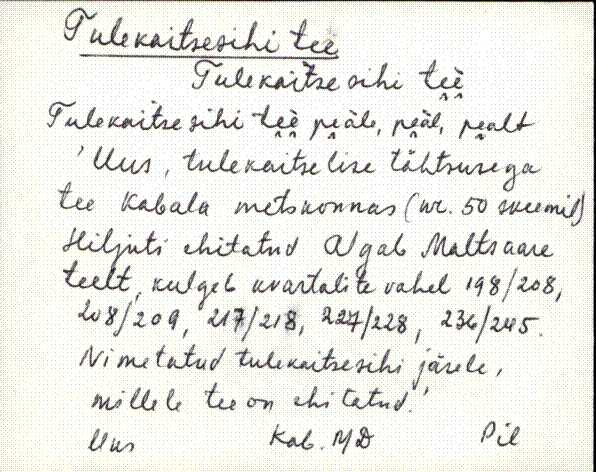 Tulekaitsesihi tee
Tulekaitsesihi tèè
Tulekaitsesihi tèè peäle, peäl, pealt
'Uus, tulekaitselise tähtsusega
tee Kabala metskonnas (nr. 50 skeemil)
Hiljuti ehitatud Algab Maltsaare
teelt, kulgeb kvartalite vahel 198/208,
208/209, 217/218, 227/228, 236/245.
Nimetatud tulekaitsesihi järele,
millele tee on ehitatud.'
Uus Kab. MD Pil